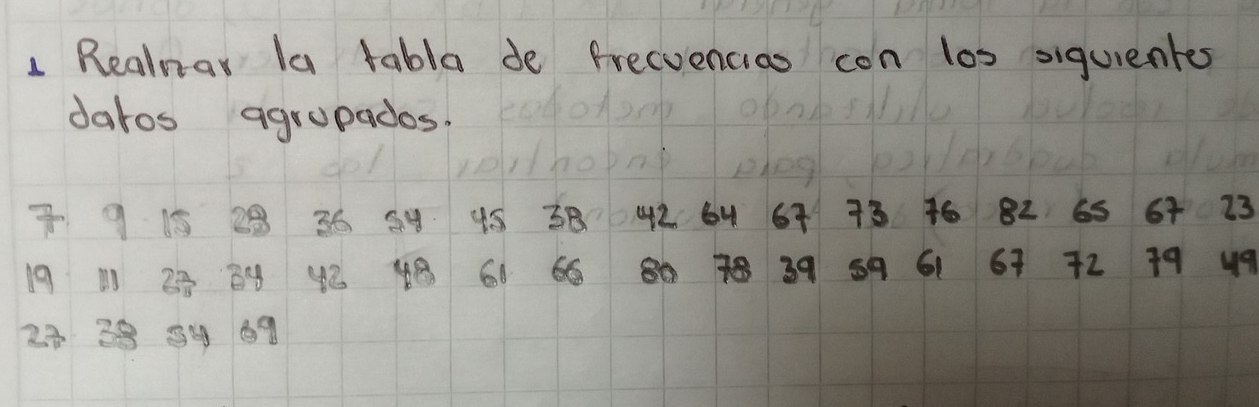 1 Realizar la tabla de frecuencias con los siguientes
datos agrupados.
7 9 15 28 36 54 45 38 42 64 67 73 76 82 65 67 23
19 11 27 34 42 48 61 66 80 78 39 59 61 67 72 79 49
27 38 54 69